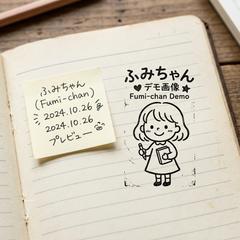 ふみちゃん
(Fumi-chan)
2024.10.26
2024.10.26
プレビュー
ふみちゃん
♥デモ画像★
Fumi-chan Demo